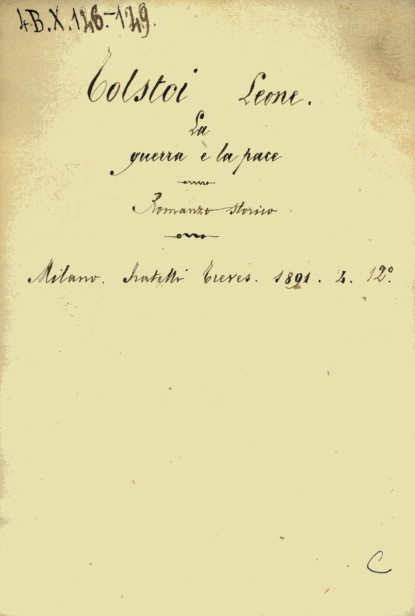 4B.X.126.-129.
Tolstoi Leone.
La
guerra e la pace
Romanzo storico
Milano. Fratelli Treves. 1891. 4. 12º.
C